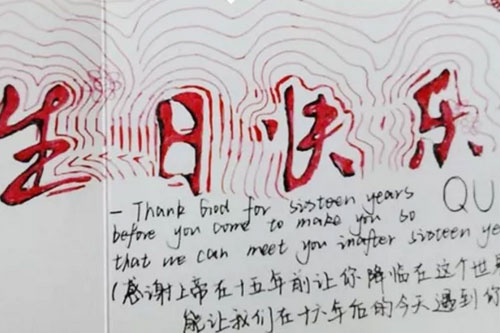 生日快乐
- Thank God for sixteen years QU
before you come to make you so
that we can meet you inafter sixteen ye
(感谢上帝在十五年前让你降临在这个世界
能让我们在十六年后的今天遇到你